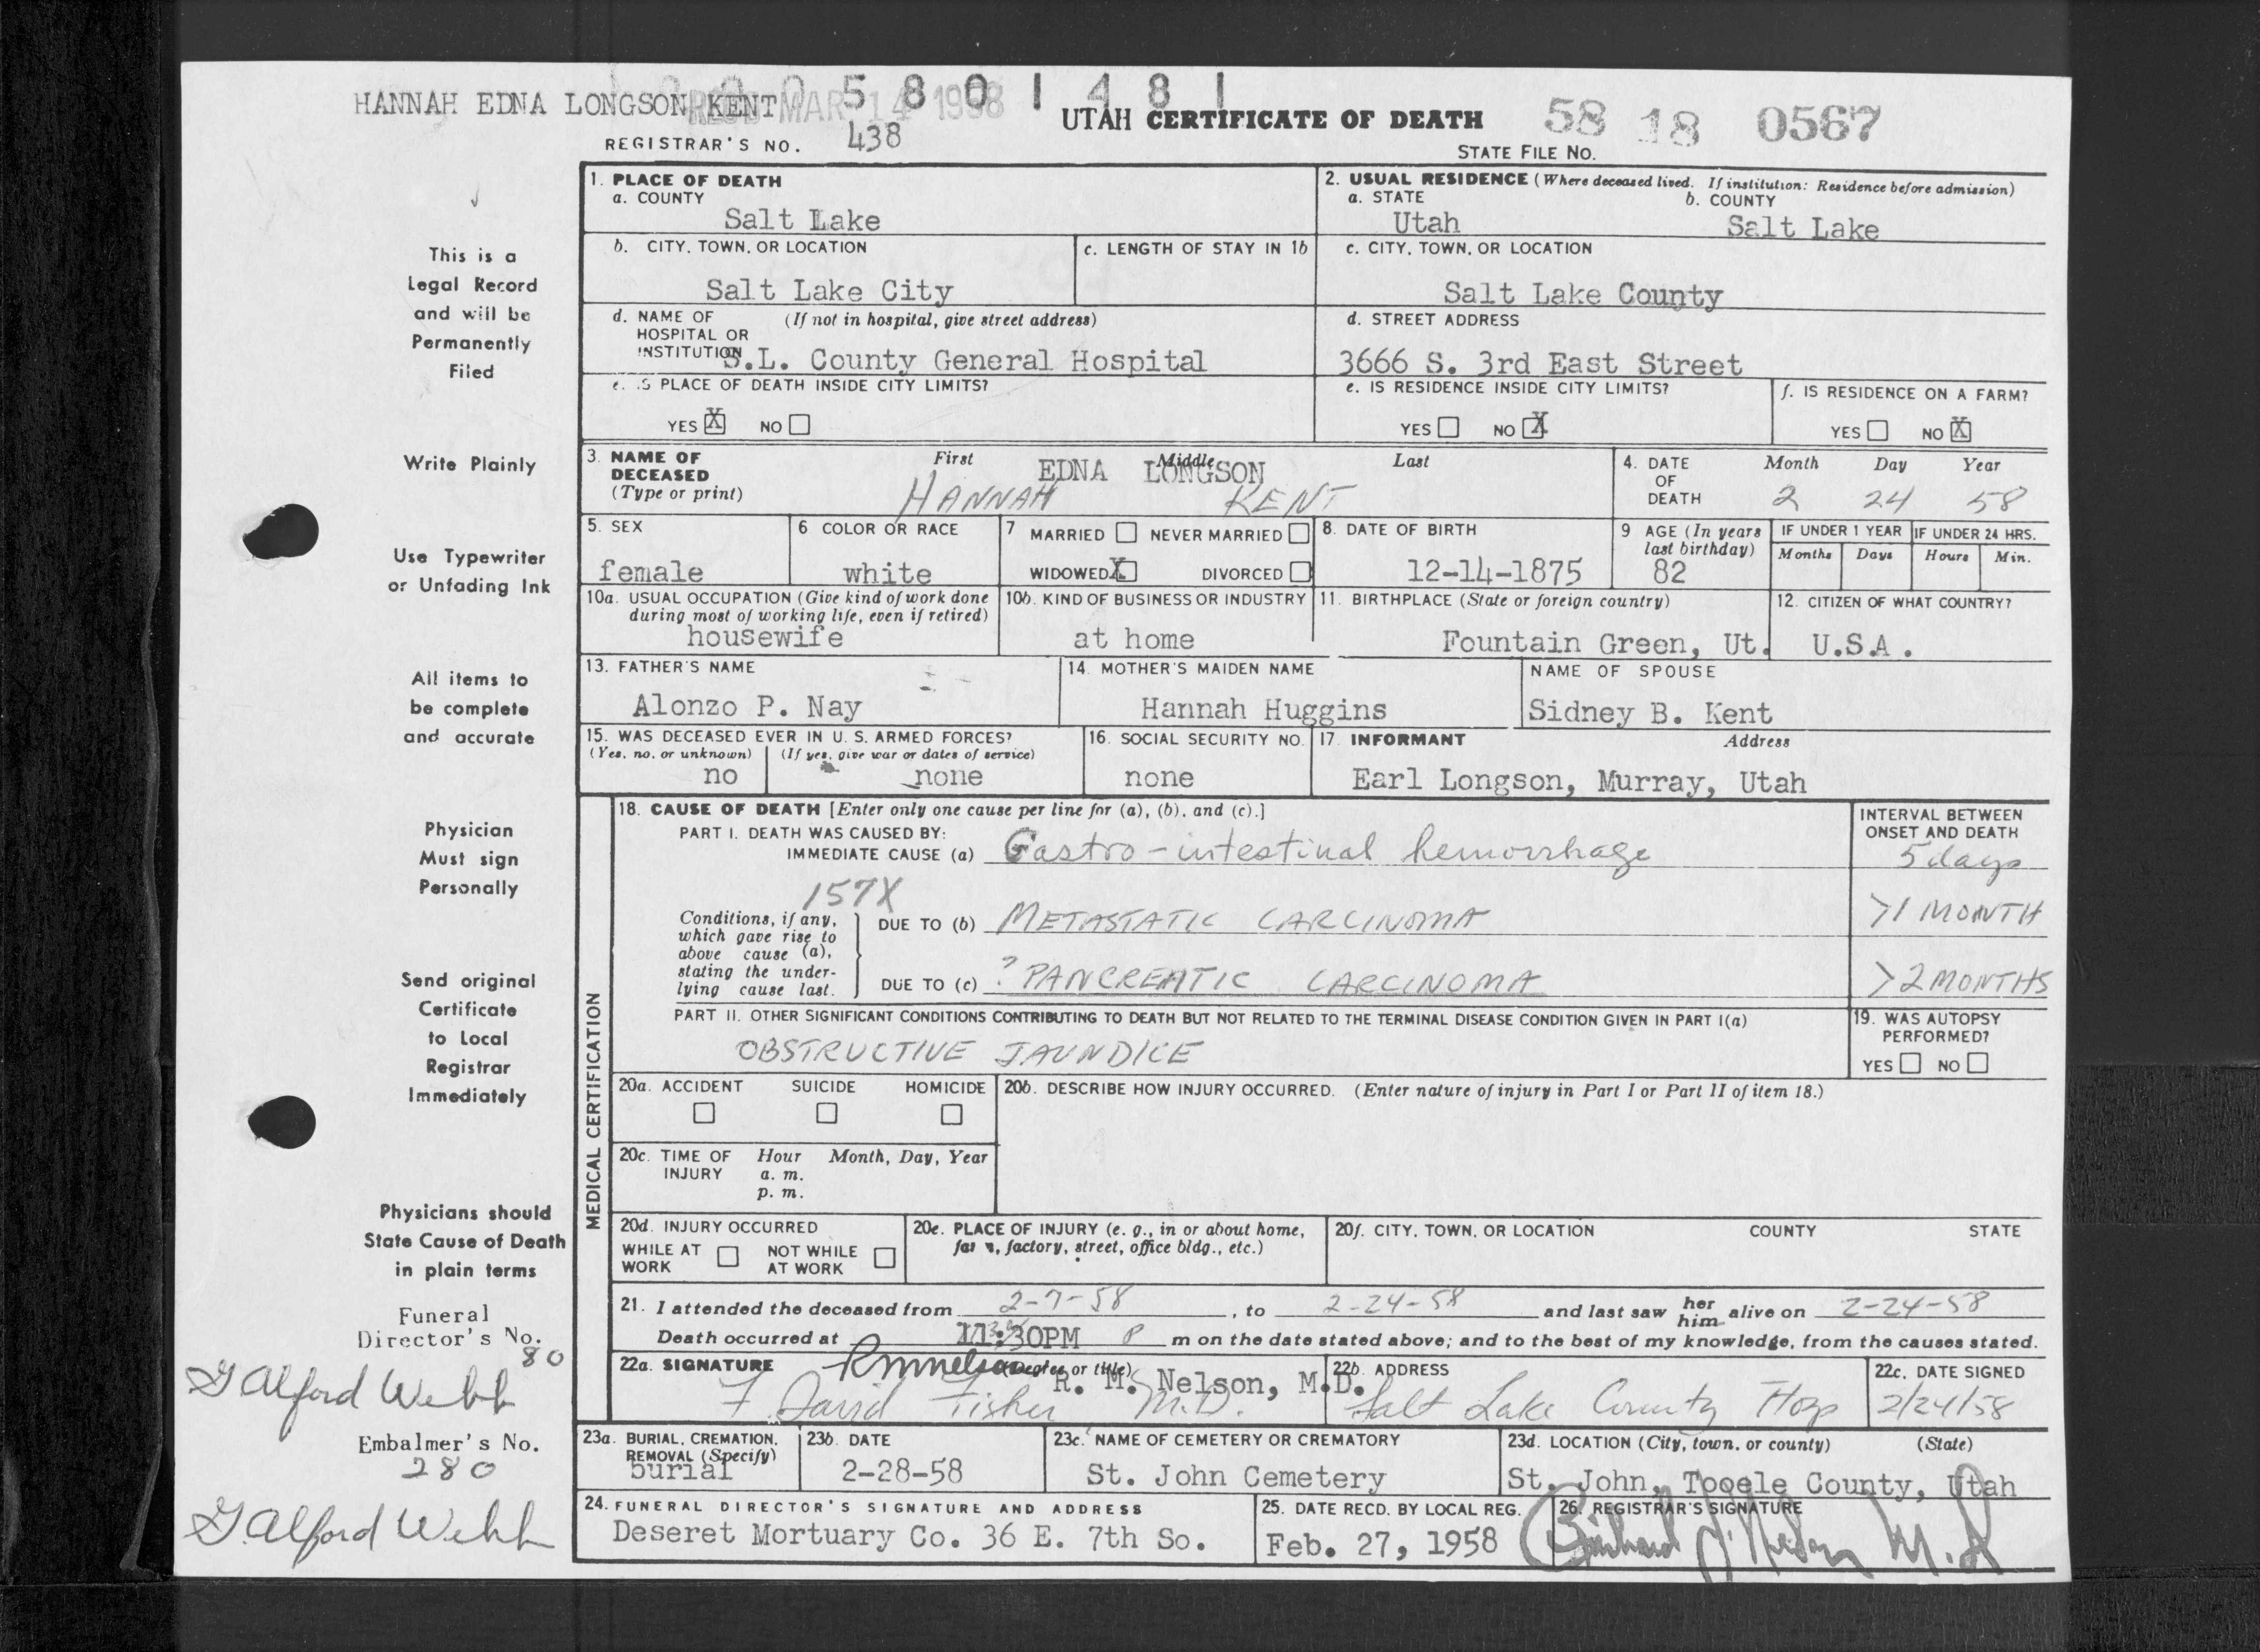 HANNAH EDNA LONGSON KENT REC'D MAR 14 1958 5801481
UTAH CERTIFICATE OF DEATH 58 18 0567
REGISTRAR'S NO. 438 STATE FILE No.
1. PLACE OF DEATH
a. COUNTY
Salt Lake
2. USUAL RESIDENCE (Where deceased lived. If institution: Residence before admission)
a. STATE b. COUNTY
Utah Salt Lake
b. CITY, TOWN, OR LOCATION
Salt Lake City
c. LENGTH OF STAY IN 1b
c. CITY, TOWN, OR LOCATION
Salt Lake County
d. NAME OF (If not in hospital, give street address)
HOSPITAL OR
INSTITUTION S.L. County General Hospital
d. STREET ADDRESS
3666 S. 3rd East Street
e. IS PLACE OF DEATH INSIDE CITY LIMITS?
YES X NO
e. IS RESIDENCE INSIDE CITY LIMITS?
YES NO X
f. IS RESIDENCE ON A FARM?
YES NO X
3. NAME OF First Middle Last
DECEASED
(Type or print)
EDNA LONGSON
HANNAH KENT
4. DATE Month Day Year
OF
DEATH 2 24 58
5. SEX
female
6 COLOR OR RACE
white
7 MARRIED NEVER MARRIED
WIDOWED X DIVORCED
8. DATE OF BIRTH
12-14-1875
9 AGE (In years
last birthday)
82
IF UNDER 1 YEAR IF UNDER 24 HRS.
Months Days Hours Min.
10a. USUAL OCCUPATION (Give kind of work done
during most of working life, even if retired)
housewife
10b. KIND OF BUSINESS OR INDUSTRY
at home
11. BIRTHPLACE (State or foreign country)
Fountain Green, Ut.
12. CITIZEN OF WHAT COUNTRY?
U.S.A.
13. FATHER'S NAME
Alonzo P. Nay
14. MOTHER'S MAIDEN NAME
Hannah Huggins
NAME OF SPOUSE
Sidney B. Kent
15. WAS DECEASED EVER IN U. S. ARMED FORCES?
(Yes, no, or unknown) (If yes, give war or dates of service)
no none
16. SOCIAL SECURITY NO.
none
17. INFORMANT Address
Earl Longson, Murray, Utah
MEDICAL CERTIFICATION
18. CAUSE OF DEATH [Enter only one cause per line for (a), (b), and (c).]
PART I. DEATH WAS CAUSED BY:
IMMEDIATE CAUSE (a) Gastro-intestinal hemorrhage
INTERVAL BETWEEN
ONSET AND DEATH
5 days
157X
Conditions, if any,
which gave rise to
above cause (a),
stating the under-
lying cause last.
DUE TO (b) METASTATIC CARCINOMA >1 MONTH
DUE TO (c) ? PANCREATIC CARCINOMA >2 MONTHS
PART II. OTHER SIGNIFICANT CONDITIONS CONTRIBUTING TO DEATH BUT NOT RELATED TO THE TERMINAL DISEASE CONDITION GIVEN IN PART I(a)
OBSTRUCTIVE JAUNDICE
19. WAS AUTOPSY
PERFORMED?
YES NO
20a. ACCIDENT SUICIDE HOMICIDE
20b. DESCRIBE HOW INJURY OCCURRED. (Enter nature of injury in Part I or Part II of item 18.)
20c. TIME OF Hour Month, Day, Year
INJURY a. m.
p. m.
20d. INJURY OCCURRED
WHILE AT NOT WHILE
WORK AT WORK
20e. PLACE OF INJURY (e. g., in or about home,
farm, factory, street, office bldg., etc.)
20f. CITY, TOWN, OR LOCATION COUNTY STATE
21. I attended the deceased from 2-7-58, to 2-24-58 and last saw her him alive on 2-24-58
Death occurred at 11:30PM P m on the date stated above; and to the best of my knowledge, from the causes stated.
22a. SIGNATURE (Degree or title)
R M Nelson R. M. Nelson, M.D.
F. David Fisher M.D.
22b. ADDRESS
Salt Lake County Hosp
22c. DATE SIGNED
2/24/58
23a. BURIAL, CREMATION,
REMOVAL (Specify)
burial
23b. DATE
2-28-58
23c. NAME OF CEMETERY OR CREMATORY
St. John Cemetery
23d. LOCATION (City, town, or county) (State)
St. John, Tooele County, Utah
24. FUNERAL DIRECTOR'S SIGNATURE AND ADDRESS
Deseret Mortuary Co. 36 E. 7th So.
25. DATE RECD. BY LOCAL REG.
Feb. 27, 1958
26. REGISTRAR'S SIGNATURE
M.D.
This is a
Legal Record
and will be
Permanently
Filed
Write Plainly
Use Typewriter
or Unfading Ink
All items to
be complete
and accurate
Physician
Must sign
Personally
Send original
Certificate
to Local
Registrar
Immediately
Physicians should
State Cause of Death
in plain terms
Funeral
Director's No.
80
G Alford Webb
Embalmer's No.
280
G. Alford Webb